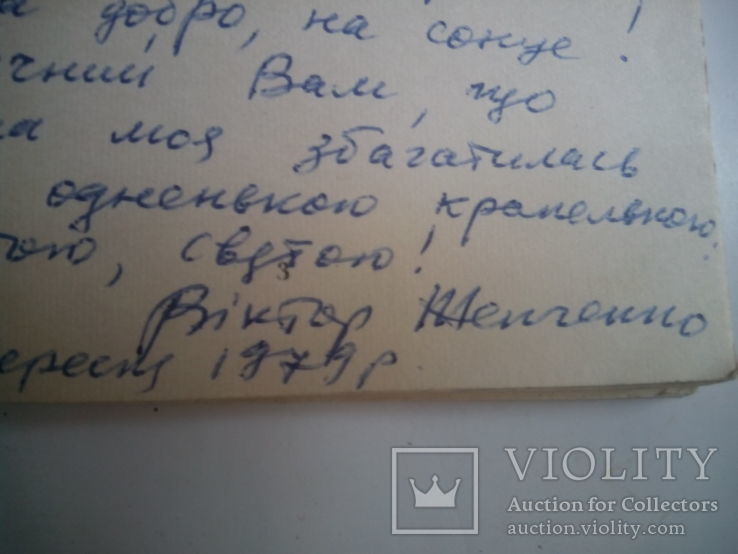 добро, на сонце!
чний Вам, що
на моя збагатилась
одненькою крапелькою
чою, святою!
Віктор Женченко
вересня 1979 р
VIOLITY
Auction for Collectors
auction.violity.com